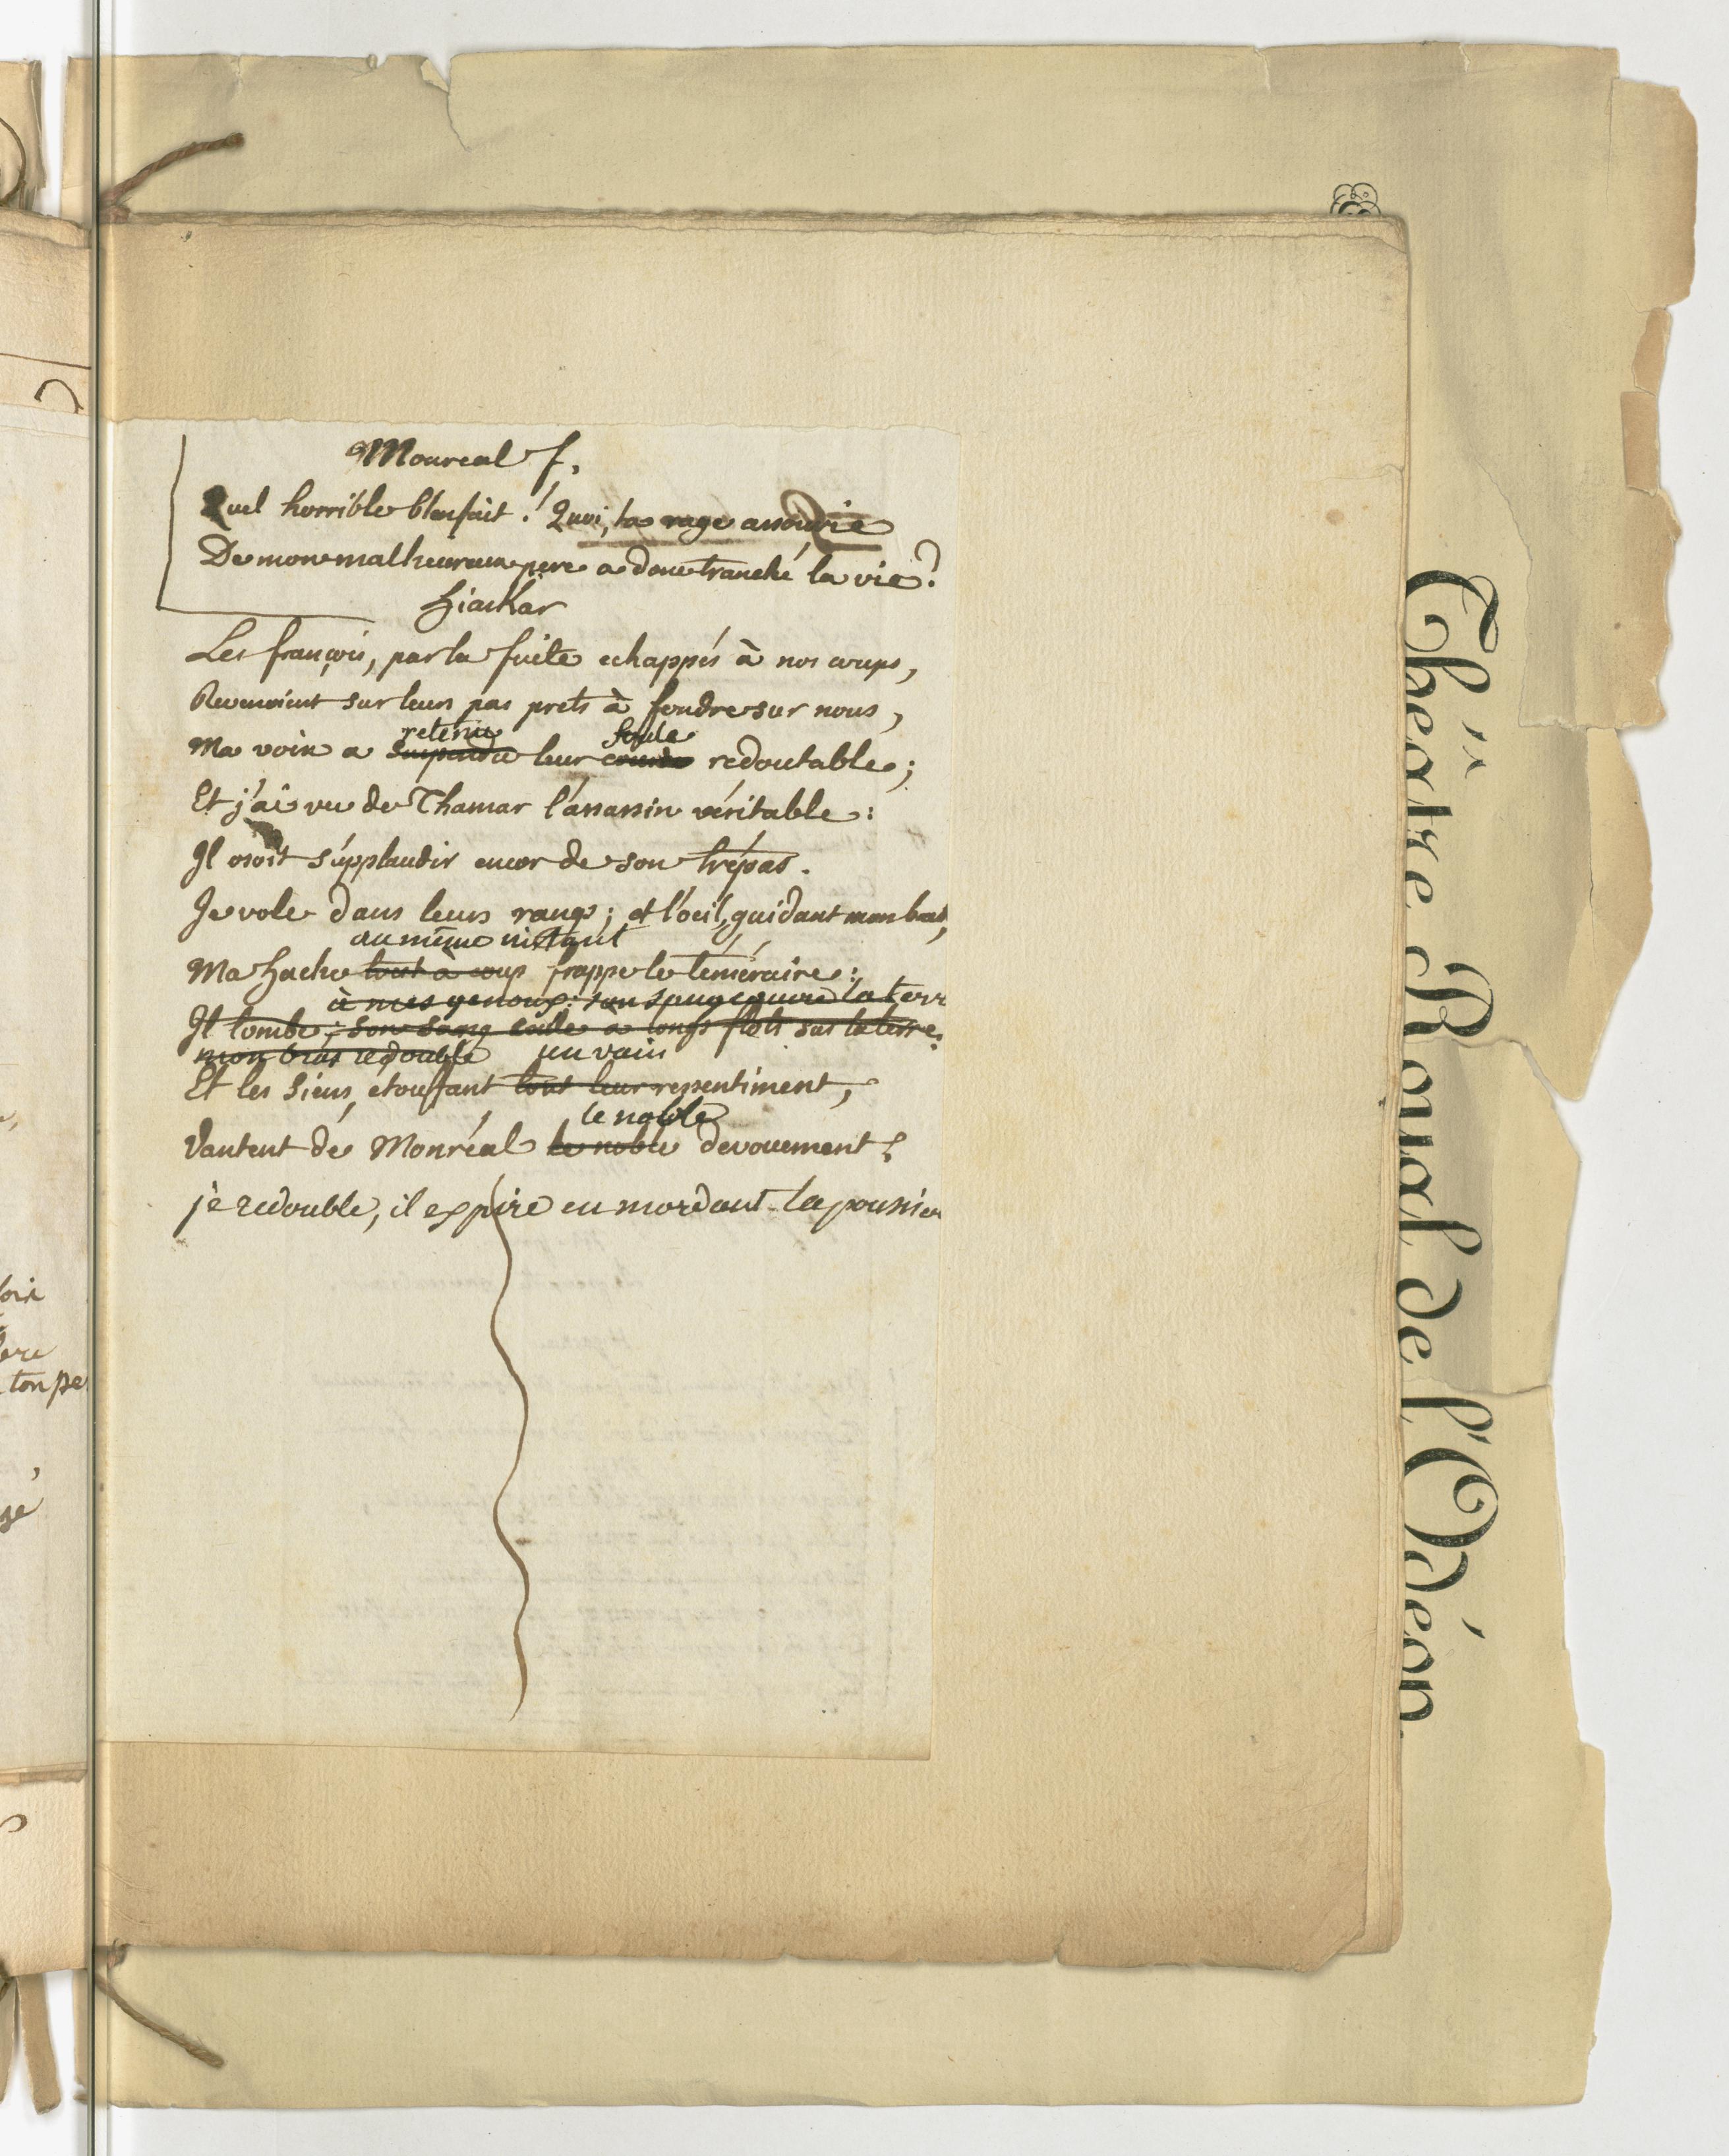 Monreal f.
Quel horrible bienfait! Quoi, ta rage assouvie
De mon malheureux pere a donc tranché la vie?
hiaskar
Les françois, par la fuite echappés à nos coups,
Revenoient sur leurs pas prets à fondre sur nous,
retenu foule
Ma voix a suspendu leur redoutable;
Et j'ai vu de Thamar l'assassin véritable:
Il osoit s'applaudir encor de son trépas.
Je vole dans leurs rangs; et l'oeil, guidant mon bras,
au même instant
Ma hache tout à coup frappe le téméraire:
à mes genoux: son sang couvre la terr
Il tombe; son sang coule à longs flots sur la terre.
mon bras redouble un vain
Et les siens, etouffant tout leur ressentiment,
le noble
Vantent de Monréal le noble devouement!
je redouble, il expire en mordant la poussier
Théâtre Royal de l'Odéon
loix
ton pe